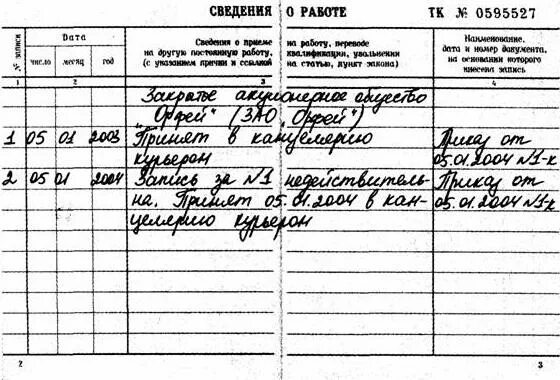 СВЕДЕНИЯ О РАБОТЕ ТК № 0595527
№ записи
Дата
число месяц год
Сведения о приеме на работу, переводе
на другую постоянную работу, квалификации, увольнении
(с указанием причин и ссылкой на статью, пункт закона)
Наименование,
дата и номер документа,
на основании которого
внесена запись
1 2 3 4
Закрытое акционерное общество
„Орфей" (ЗАО „Орфей")
1 05 01 2003 Принят в канцелярию Приказ от
курьером 05.01.2004 №1-к
2 05 01 2004 Запись за №1 недействитель- Приказ от
на. Принят 05.01.2004 в кан- 05.01.2004 №1-к
целярию курьером
2 3